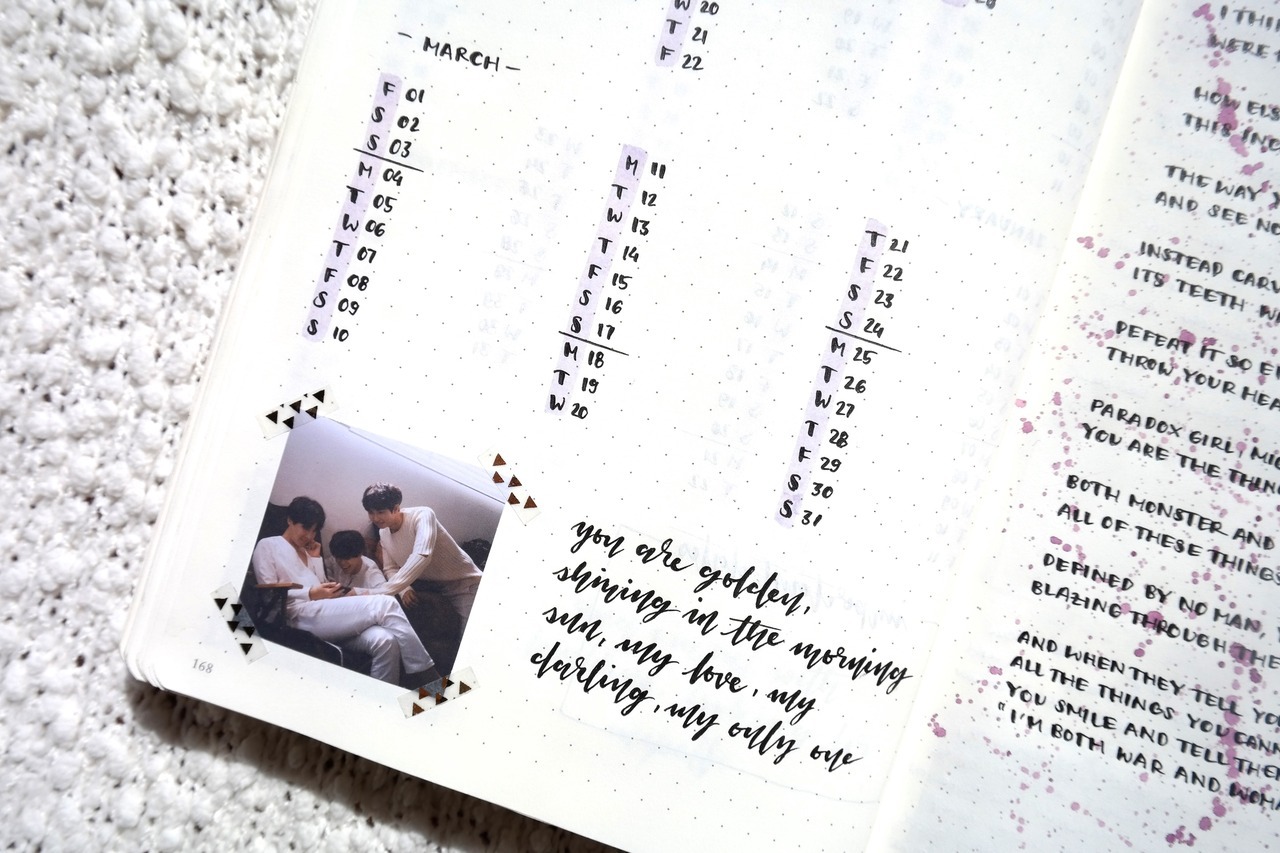 20
T 21
F 22
- MARCH -
F 01
S 02
S 03
M 04
T 05
W 06
T 07
F 08
S 09
S 10
M 11
T 12
W 13
T 14
F 15
S 16
S 17
M 18
T 19
W 20
T 21
F 22
S 23
S 24
M 25
T 26
W 27
T 28
F 29
S 30
S 31
you are golden,
shining in the morning
sun, my love, my
darling, my only one
168
I
WERE
HOW
THIS
THE WAY
AND SEE
INSTEAD
ITS TEETH
DEFEAT IT SO
THROW YOUR
PARADOX GIRL,
YOU ARE THE
BOTH MONSTER AND
ALL OF THESE THINGS
DEFINED BY NO MAN,
BLAZING THROUGH
AND WHEN THEY TELL
ALL THE THINGS YOU
YOU SMILE AND TELL
"I'M BOTH WAR AND